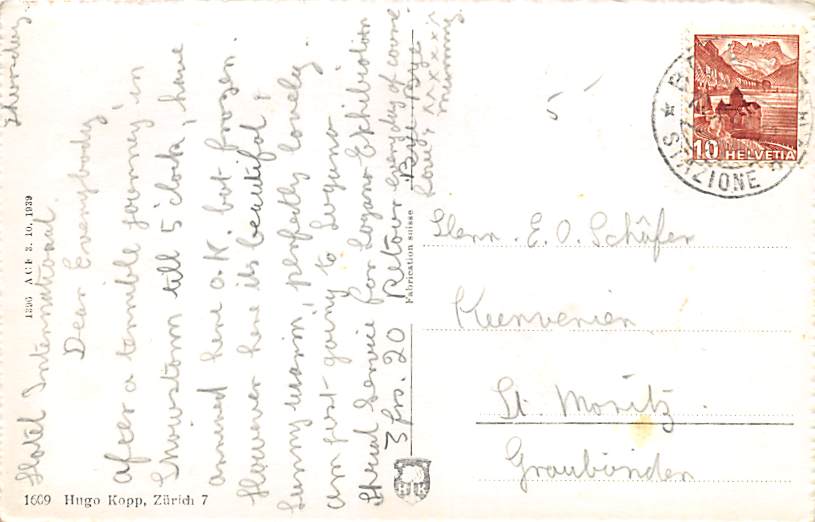 Thursday
Hotel International.
Dear Everybody
after a terrible journey in
Snowstorm till 5 o'clock, have
arrived here O.K. but frozen.
However here its beautiful &
sunny warm, perfectly lovely.
am just going to Lugano
Special Service for Lugano Exhibition
3 frs. 20 Retour everyday of course
Bye-Bye
Love, xxxxx
Mummy.
1396 ACF 3. 10. 1939
1609 Hugo Kopp, Zürich 7
Fabrication suisse
10 HELVETIA
STAZIONE
Herr. E. O. Schäfer
Kurverein
St. Moritz.
Graubünden